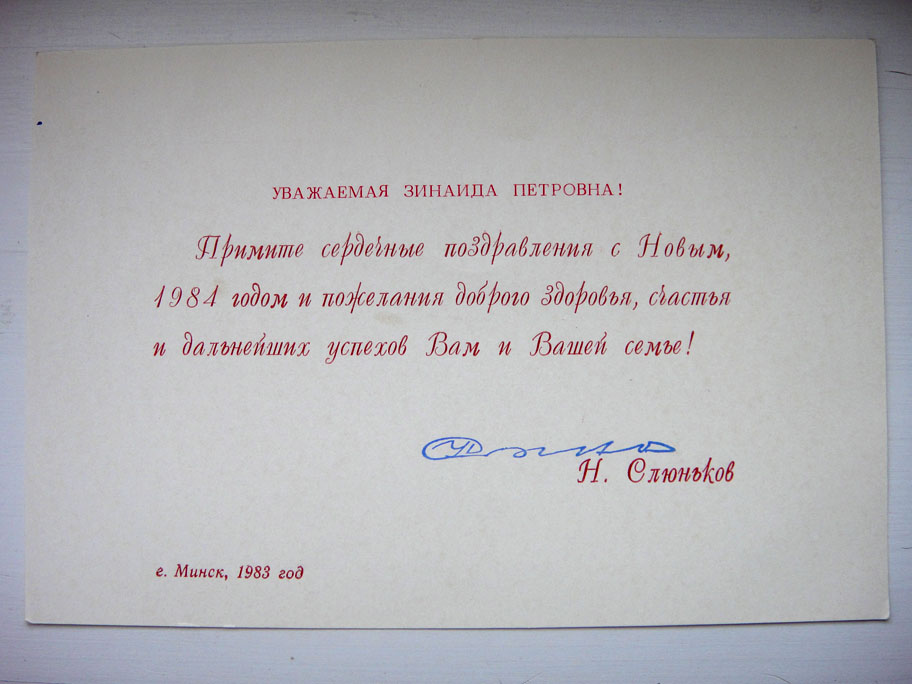 УВАЖАЕМАЯ ЗИНАИДА ПЕТРОВНА!
Примите сердечные поздравления с Новым,
1984 годом и пожелания доброго здоровья, счастья
и дальнейших успехов Вам и Вашей семье!
Н. Слюньков
г. Минск, 1983 год